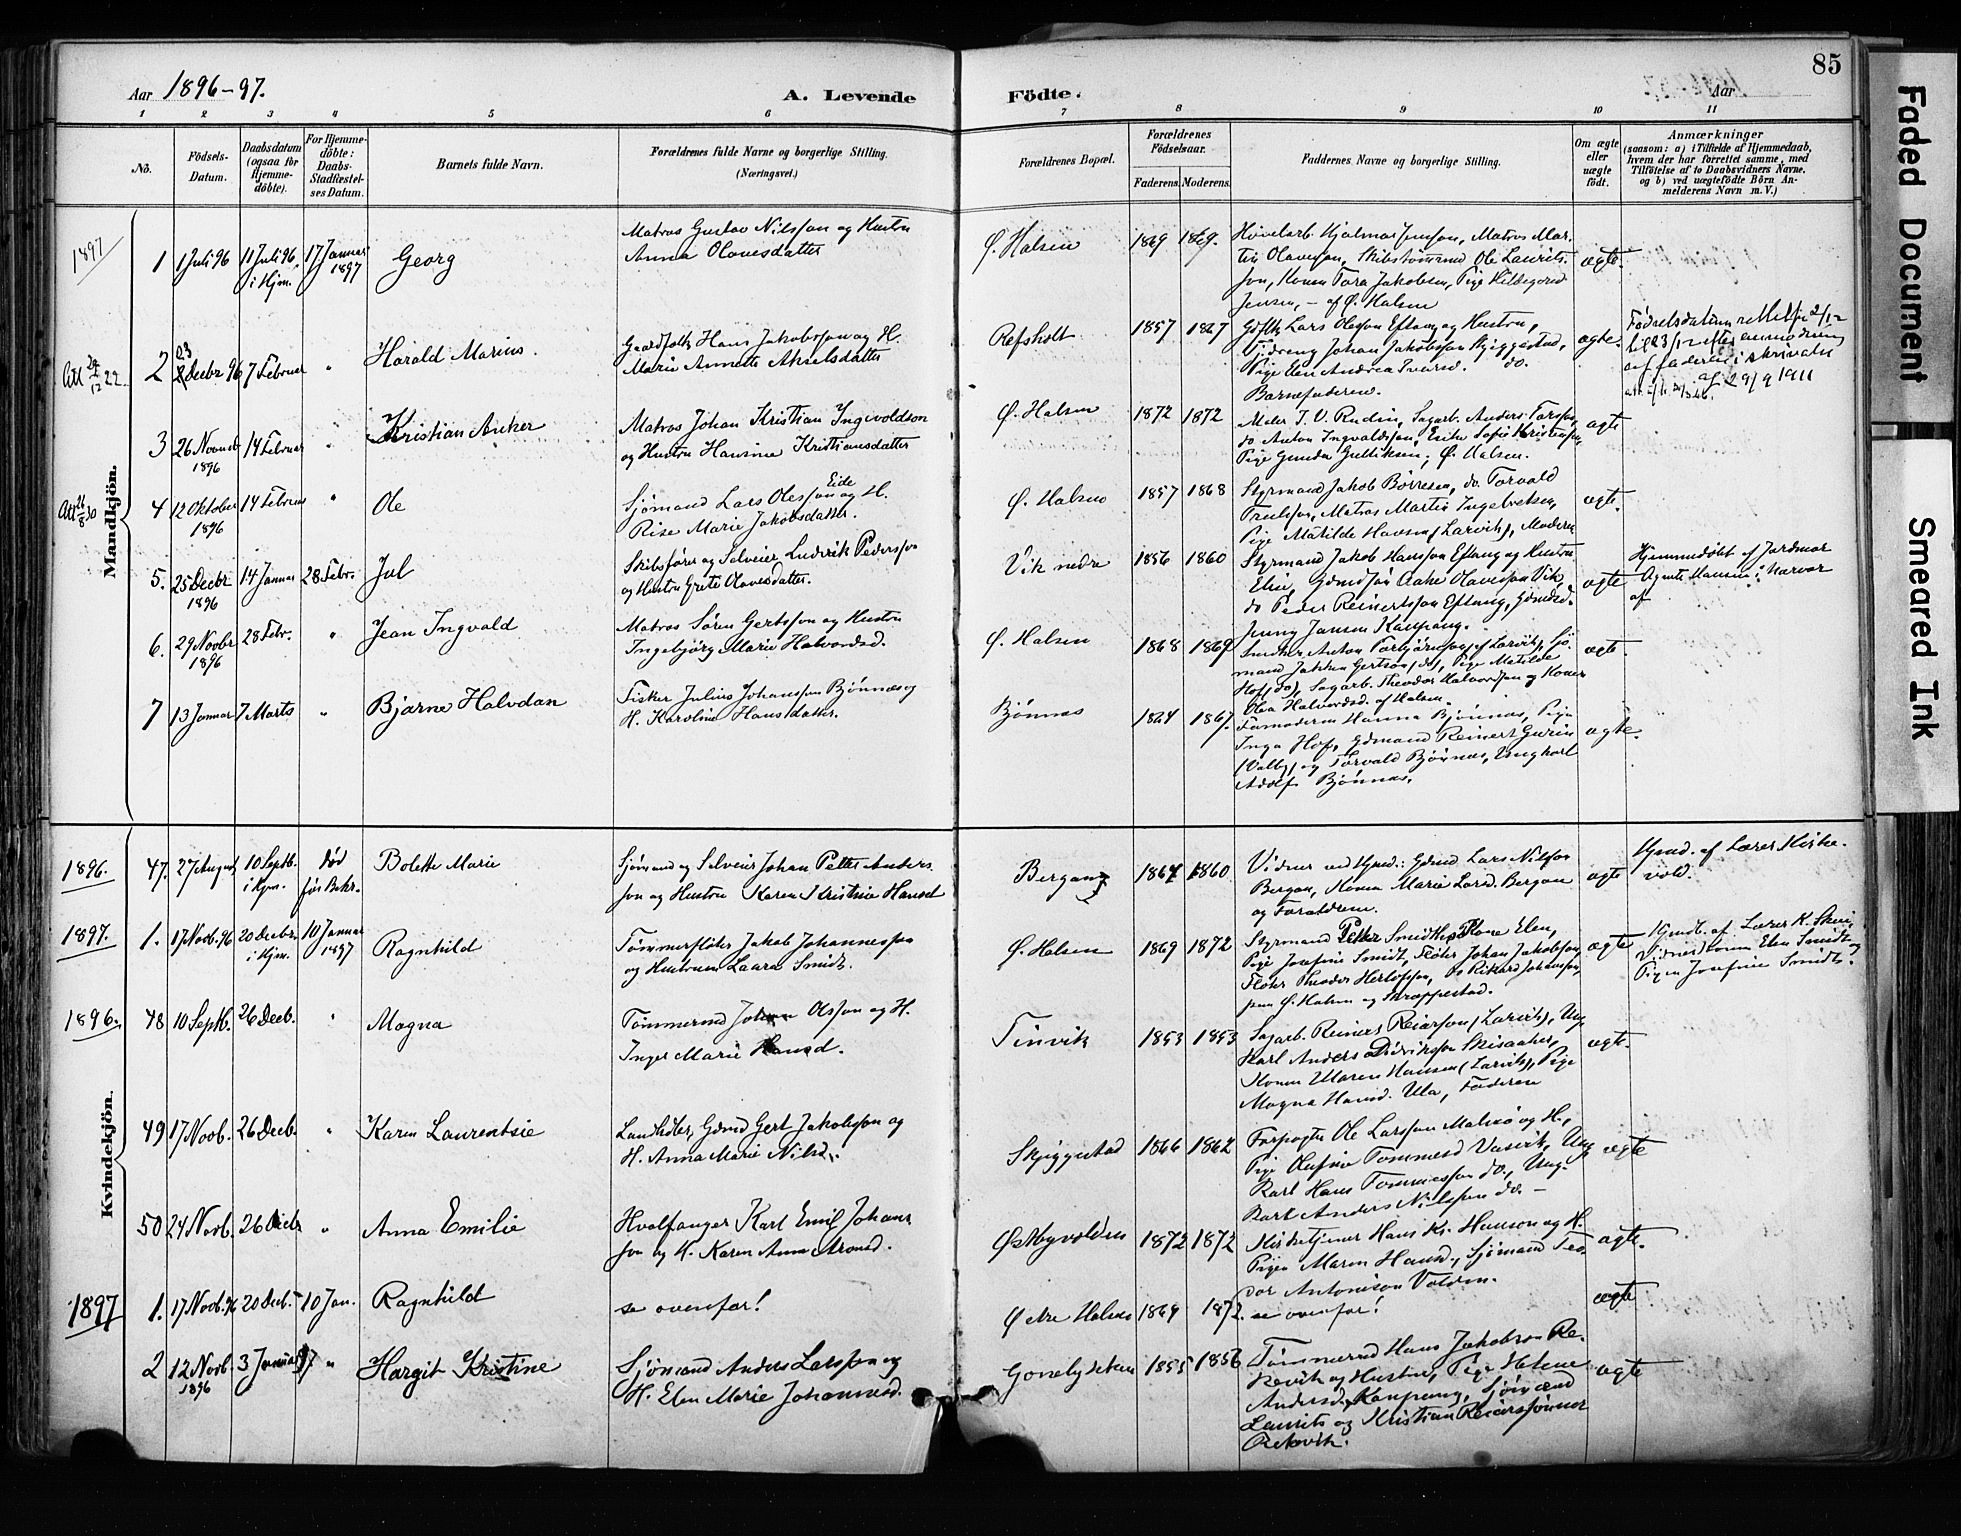 85
Aar 1896-97.
A. Levende
Födte.
Aar
1 2 3 4 5 6 7 8 9 10 11
No.
Födsels-Datum.
Daabsdatum (ogsaa for Hjemme-döbte).
For Hjemme-döbte: Daabs-Stadfæstel-ses Datum.
Barnets fulde Navn.
Forældrenes fulde Navne og borgerlige Stilling.
(Næringsvei.)
Forældrenes Bopæl.
Forældrenes Födselsaar.
Faderens. Moderens.
Faddernes Navne og borgerlige Stilling.
Om ægte eller uægte födt.
Anmærkninger
(saasom: a) i Tilfælde af Hjemmedaab,
hvem der har forrettet samme, med
Tilföielse af to Daabsvidners Navne,
og b) ved uægtefödte Börn An-
melderens Navn m. V.)
Mandkjön.
1897
1 1 Juli 96 11 Juli 96 i Hjm. 17 Januar 1897 Georg
Matros Gustav Nilsson og Hustru
Anna Olavesdatter
Ø. Halsen 1869 1869.
Høvelarb. Hjalmar Jensson, Matros Mar-
tin Olavesson, Skibstømmd Ole Laurits-
son, Konen Tora Jakobsen, Pige Hildegard
Jensen, - af Ø. Halsen
ægte.
2 23 Decbr 96 7 Februar " Harald Marius.
Gaardfolk Hans Jakobsson og H.
Marie Annette Akselsdatter
Refsholt 1857 1867
Gdflk Lars Olesson Eftang og Hustru,
Johan Jakobsson Skjiggestad,
Pige Elen Andrea Svarsd. do.
Barnefaderen.
ægte.
Fødselsdatum rettet fra 2/12
til 23/12 efter anmodning
af faderen i skrivelse
af 29/9 1911
Att 22.
3 26 Novembr 1896 14 Februar " Kristian Anker
Matros Johan Kristian Ingvoldson
og Hustru Hansine Kristiansdatter
Ø. Halsen 1872 1872
Maler J. V. Rudin, Sagarb. Anders
do Anton Ingvaldsson, Enke Sofie Kristensen,
Pige Gunda Gulliksen, Ø. Halsen.
ægte
Att 26/8
4 12 Oktober 1896 14 Februar " Ole
Sjømand Lars Olesson Eide og H.
Rise Marie Jakobsdatter.
Ø. Halsen 1857 1868
Styrmand Jakob Børresen, do. Torvald
Trulsson, Matros Martin Ingebretsen,
Pige Matilde Hansen (Larvik), Moderen
ægte.
5. 25 Decbr 1896 14 Januar 28 Febr. Jul
Skibsfører og Selveier Ludvik Pedersson
og Hustru Grete Olavesdatter.
Vik nedre 1856 1860
Styrmand Jakob Hansson Eftang og Hustru
Elin, Gdmdsøn Aake Olavesson Vik,
do Peder Reinertsson Eftang, Gdmdsd.
Jenny Jansen Kaupang.
ægte
Hjemmedøbt af Jordmor
Agnete Hansen, Narver
af
6. 29 Novbr 1896 28 Febr. " Jean Ingvald
Matros Søren Gertsson og Hustru
Ingebjørg Marie Halvordsd.
Ø. Halsen 1868 1869
Snedker Anton Torbjørnson af Larvik, Sjø-
mand Jakken Gertson, do, Pige Matilde
Hof, do, Sagarb. Theodor Halvordson og Konen
Olea Halvordsd. af Halsen.
ægte.
7 13 Januar 7 Marts " Bjarne Halvdan
Fisker Julius Johansson Bjønnes og
H. Karoline Hansdatter.
Bjønnes 1864 1867.
Farmoderen Hanna Bjønnes, Pige
Inga Hof, Gdmand Reinert Gurin
(Valby) og Torvald Bjønnes, Ungkarl
Adolf Bjønnes.
ægte.
Kvindekjön.
1896. 47. 27 August 10 Septb. i Hjm. Død før Bekr. Bolette Marie
Sjømand og Selveier Johan Petter Anders-
son og Hustru Karen Kristine Hansd
Bergan 1864 1860
Vidner ved Hjmd.: Gdmd Lars Nilsson
Bergan, Konen Marie Larsd. Bergan
og Forældrene.
ægte
Hjmd. af Lærer Kirke-
vold.
1897. 1. 17 Novb. 96 20 Decbr. i Hjm. 10 Januar 1897 Ragnhild
Tømmerfløter Jakob Johannesson
og Hustruen Laura Smidt.
Ø. Halsen 1869 1872
Styrmand Petter Smidt, Kone Elen,
Pige Josefine Smidt, Fløter Johan Jakobson,
Fløter Theodor Herlofsson, do Rikard Johanson,
paa Ø. Halsen og Skrappestad.
ægte
Hjmdt. af Lærer K. Skei,
Vidner: Konen Elen Smidt og
Pigen Josefine Smidt.
1896. 48 10 Septb. 26 Decb. " Magna
Tømmermd Johan Olsson og H.
Inger Marie Hansd.
Tinvik 1853 1853
Sagarb. Reinert Reiarson (Larvik), Ung-
karl Anders Didriksson Skisaaker,
Konen Maren Hansen (Larvik), Pige
Magna Hansd. Ula, Faderen
ægte.
49 17 Novb. 26 Decb. " Karen Laurentsie
Landhdler, Gdmd Gert Jakobsson og
H. Anna Marie Nilsd.
Skjiggestad 1866 1862
Forpagter Ole Larsson Malmø og H.,
Pige Olufine Tommesd Vasvik, Ung
Karl Hans Tommesson do., Ung-
karl Anders Nilsson do. -
ægte
50 24 Novb. 26 Decbr " Anna Emilie
Hvalfanger Karl Emil Johans-
son og H. Karen Anna Aronsd.
Østbyvolden 1872 1872
Kirketjener Hans Kr. Hanson og H.
Pigen Maren Hansd., Sjømand Teo-
dor Antonison Volden.
ægte.
1897 1. 17 Novb. 96 20 Decb. 10 Jan. Ragnhild
se ovenfor!
Østre Halsen 1869 1872.
se ovenfor!
ægte
2 12 Novb. 1896 3 Januar 97 " Hargit Kristine
Sjømand Anders Larsson og
H. Elen Marie Johannesd.
1855 1856
Tømmermd Hans Jakobson Re-
kevik og Hustru, Pige Helene
Andersd. Kaupang, Sjømænd
Laurits og Kristian Reiarssønner
Rekevik.
ægte
Faded Document
Smeared Ink